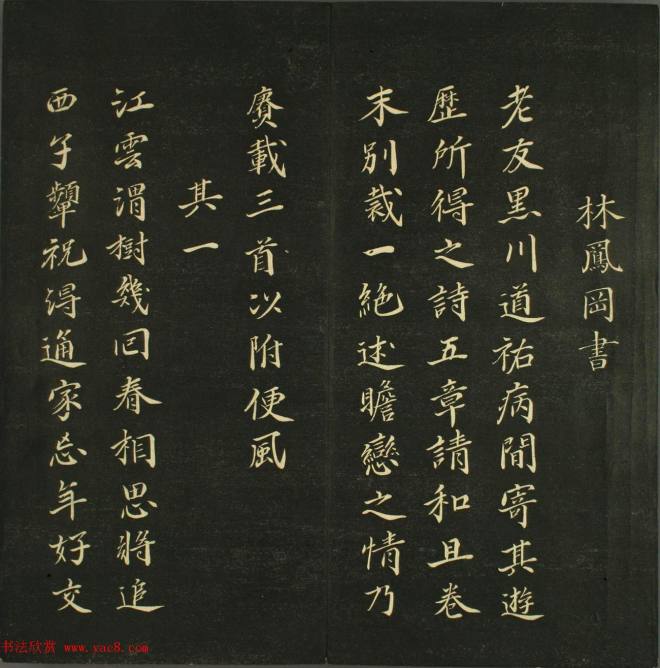 林鳳岡書
老友黒川道祐病間寄其遊
歴所得之詩五章請和且卷
末别裁一絶述瞻戀之情乃
賡載三首以附便風
其一
江雲渭樹幾回春相思将追
西子顰祝得通家忘年好交
书法欣赏 www.yac8.com